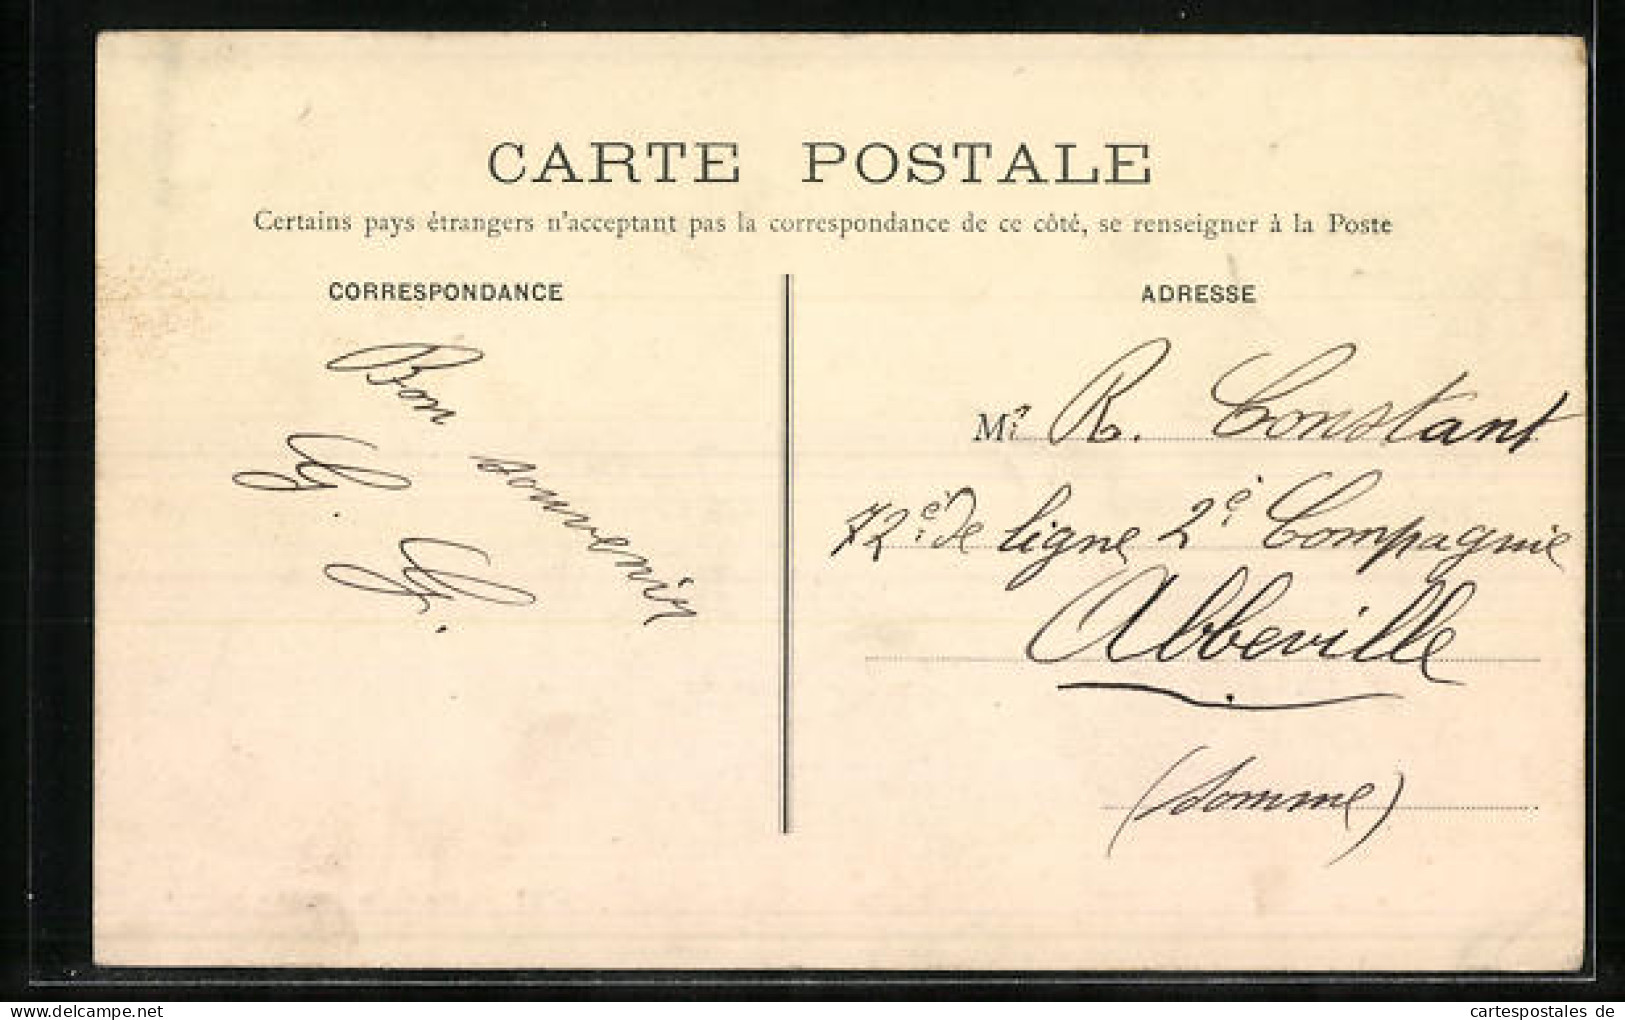 CARTE POSTALE
Certains pays étrangers n'acceptant pas la correspondance de ce côté, se renseigner à la Poste
CORRESPONDANCE
Bon souvenir
G. G.
ADRESSE
Mr. R. Constant
72e. de ligne 2e. Compagnie
Abbeville
(Somme)
cartespostales de